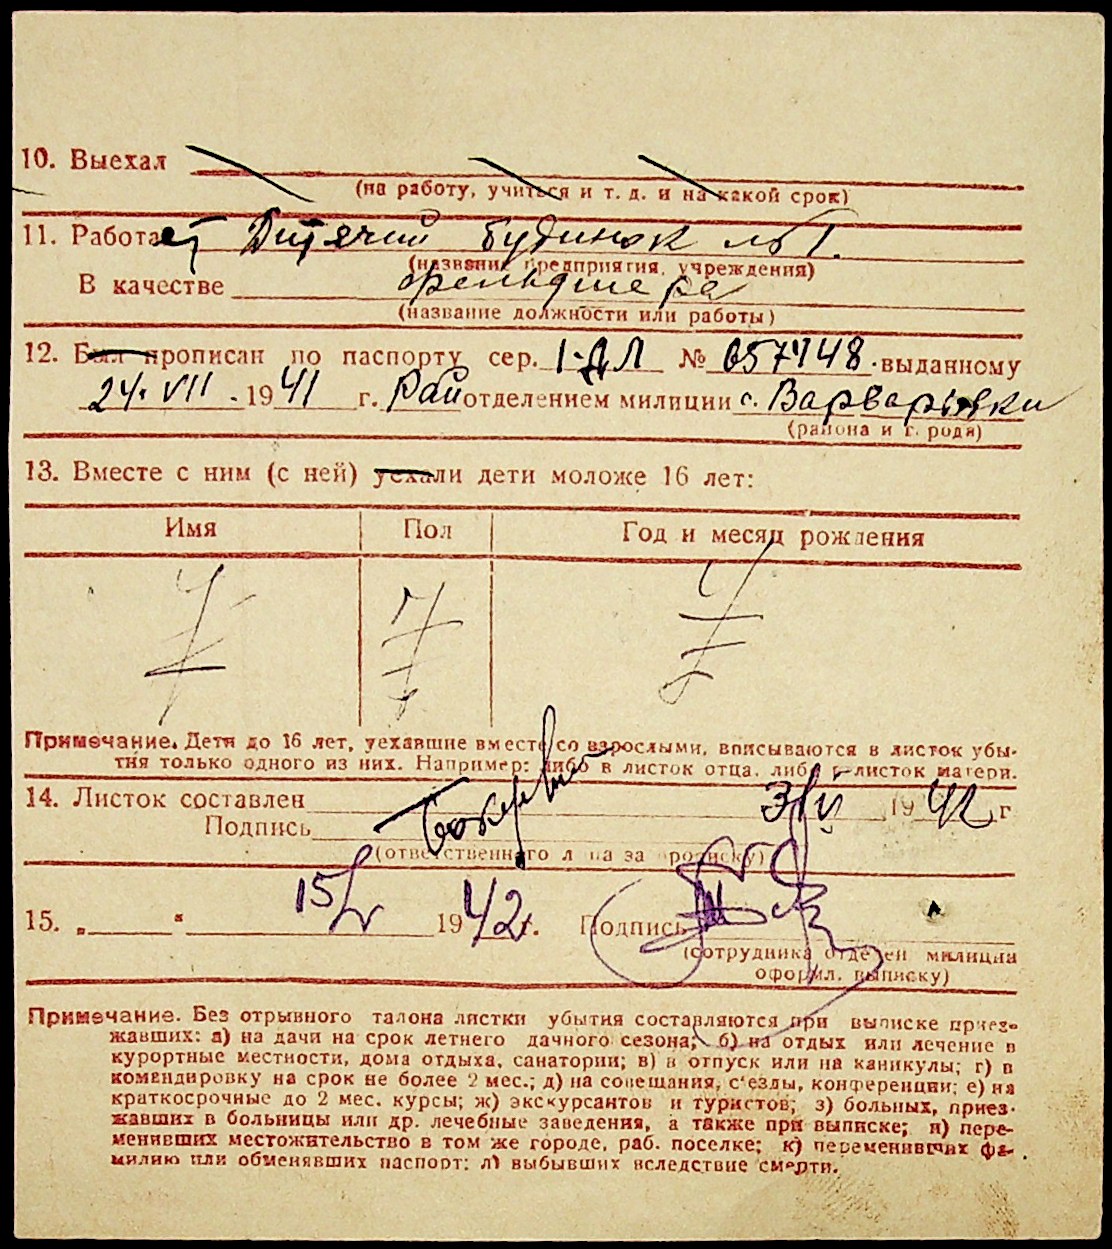 10. Выехал
(на работу, учиться и т. д. и на какой срок)
11. Работает Дитячий будинок № 1.
(название предприятия, учреждения)
В качестве фельдшера
(название должности или работы)
12. Был прописан по паспорту сер. I-ДЛ № 657448 выданному
24. VII. 1941 г. Рай отделением милиции с. Варваровки
(района и города)
13. Вместе с ним (с ней) уехали дети моложе 16 лет:
Имя Пол Год и месяц рождения
Примечание. Дети до 16 лет, уехавшие вместе со взрослыми, вписываются в листок убы-
тия только одного из них. Например: либо в листок отца, либо в листок матери.
14. Листок составлен 1942 г
Подпись
(ответственного лица за прописку)
15. „ “ 15/V 1942 г. Подпись
(сотрудника отделен. милиции
оформл. выписку)
Примечание. Без отрывного талона листки убытия составляются при выписке приез-
жавших: а) на дачи на срок летнего дачного сезона; б) на отдых или лечение в
курортные местности, дома отдыха, санатории; в) в отпуск или на каникулы; г) в
командировку на срок не более 2 мес.; д) на совещания, с'езды, конференции; е) на
краткосрочные до 2 мес. курсы; ж) экскурсантов и туристов; з) больных, приез-
жавших в больницы или др. лечебные заведения, а также при выписке; и) пере-
менивших местожительство в том же городе, раб. поселке; к) переменивших фа-
милию или обменявших паспорт; л) выбывших вследствие смерти.